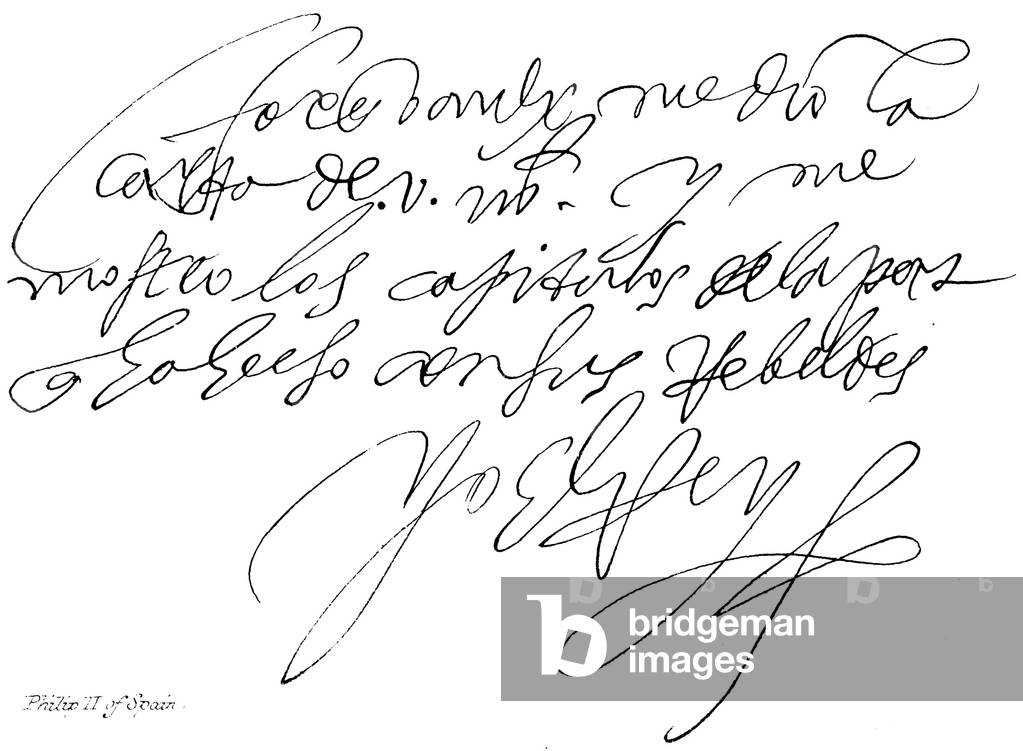 me dio la
carta de.v. md. y me
mostro los capitulos de la paz
q ha hecho con sus Rebeldes
Yo El Rey
Philip II of Spain.
bridgeman
images